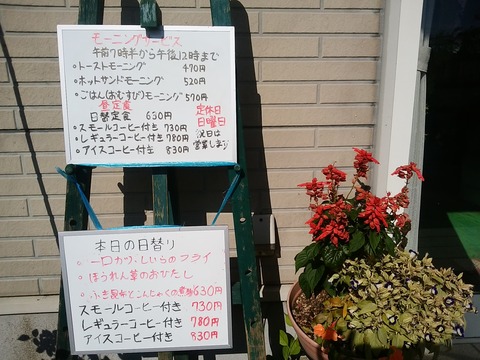 モーニングサービス
午前7時半から午後12時まで
○トーストモーニング 470円
○ホットサンドモーニング 520円
○ごはん(おむすび)モーニング570円
昼定食
日替定食 630円
スモールコーヒー付き 730円
レギュラーコーヒー付き780円
アイスコーヒー付き 830円
定休日
日曜日
祝日は
営業します
本日の日替り
○一口カツ、しいらのフライ
○ほうれん草のおひたし
○ふき昆布とこんにゃくの煮物630円
スモールコーヒー付き 730円
レギュラーコーヒー付き 780円
アイスコーヒー付き 830円